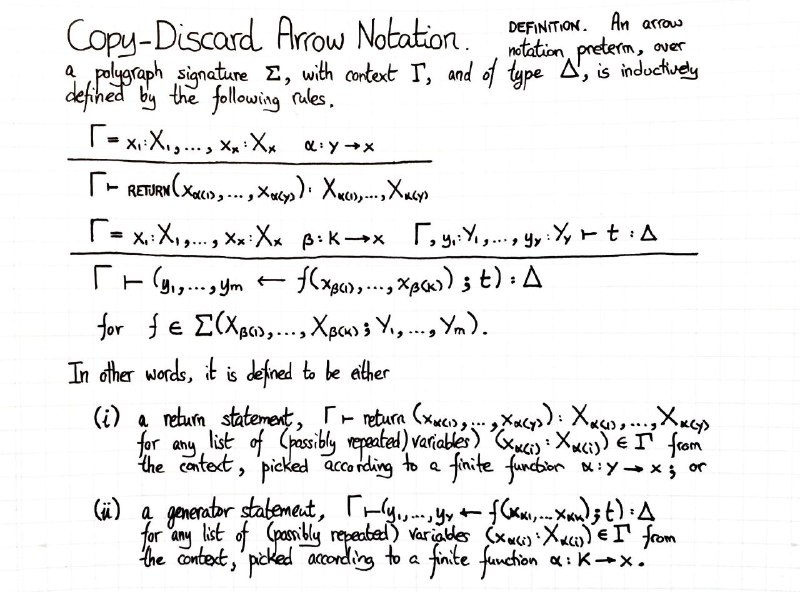 Copy-Discard Arrow Notation. DEFINITION. An arrow
notation preterm, over
a polygraph signature Σ, with context Γ, and of type Δ, is inductively
defined by the following rules.
Γ = x₁:X₁,..., xₓ:Xₓ α: y → x
Γ ⊢ RETURN(x_α(1),..., x_α(y)): X_α(1),..., X_α(y)
Γ = x₁:X₁,..., xₓ:Xₓ β: K → x Γ, y₁:Y₁,..., yᵧ:Yᵧ ⊢ t : Δ
Γ ⊢ (y₁,..., yₘ ← f(x_β(1),..., x_β(K)) ; t) : Δ
for f ∈ Σ(X_β(1),..., X_β(K) ; Y₁,..., Yₘ).
In other words, it is defined to be either
(i) a return statement, Γ ⊢ return (x_α(1),..., x_α(y)) : X_α(1),..., X_α(y)
for any list of (possibly repeated) variables) (x_α(i) : X_α(i)) ∈ Γ from
the context, picked according to a finite function α: y → x ; or
(ii) a generator statement, Γ ⊢ (y₁,..., yᵧ ← f(x_α1,... x_αK) ; t) : Δ
for any list of (possibly repeated) variables (x_α(i) : X_α(i)) ∈ Γ from
the context, picked according to a finite function α: K → x.